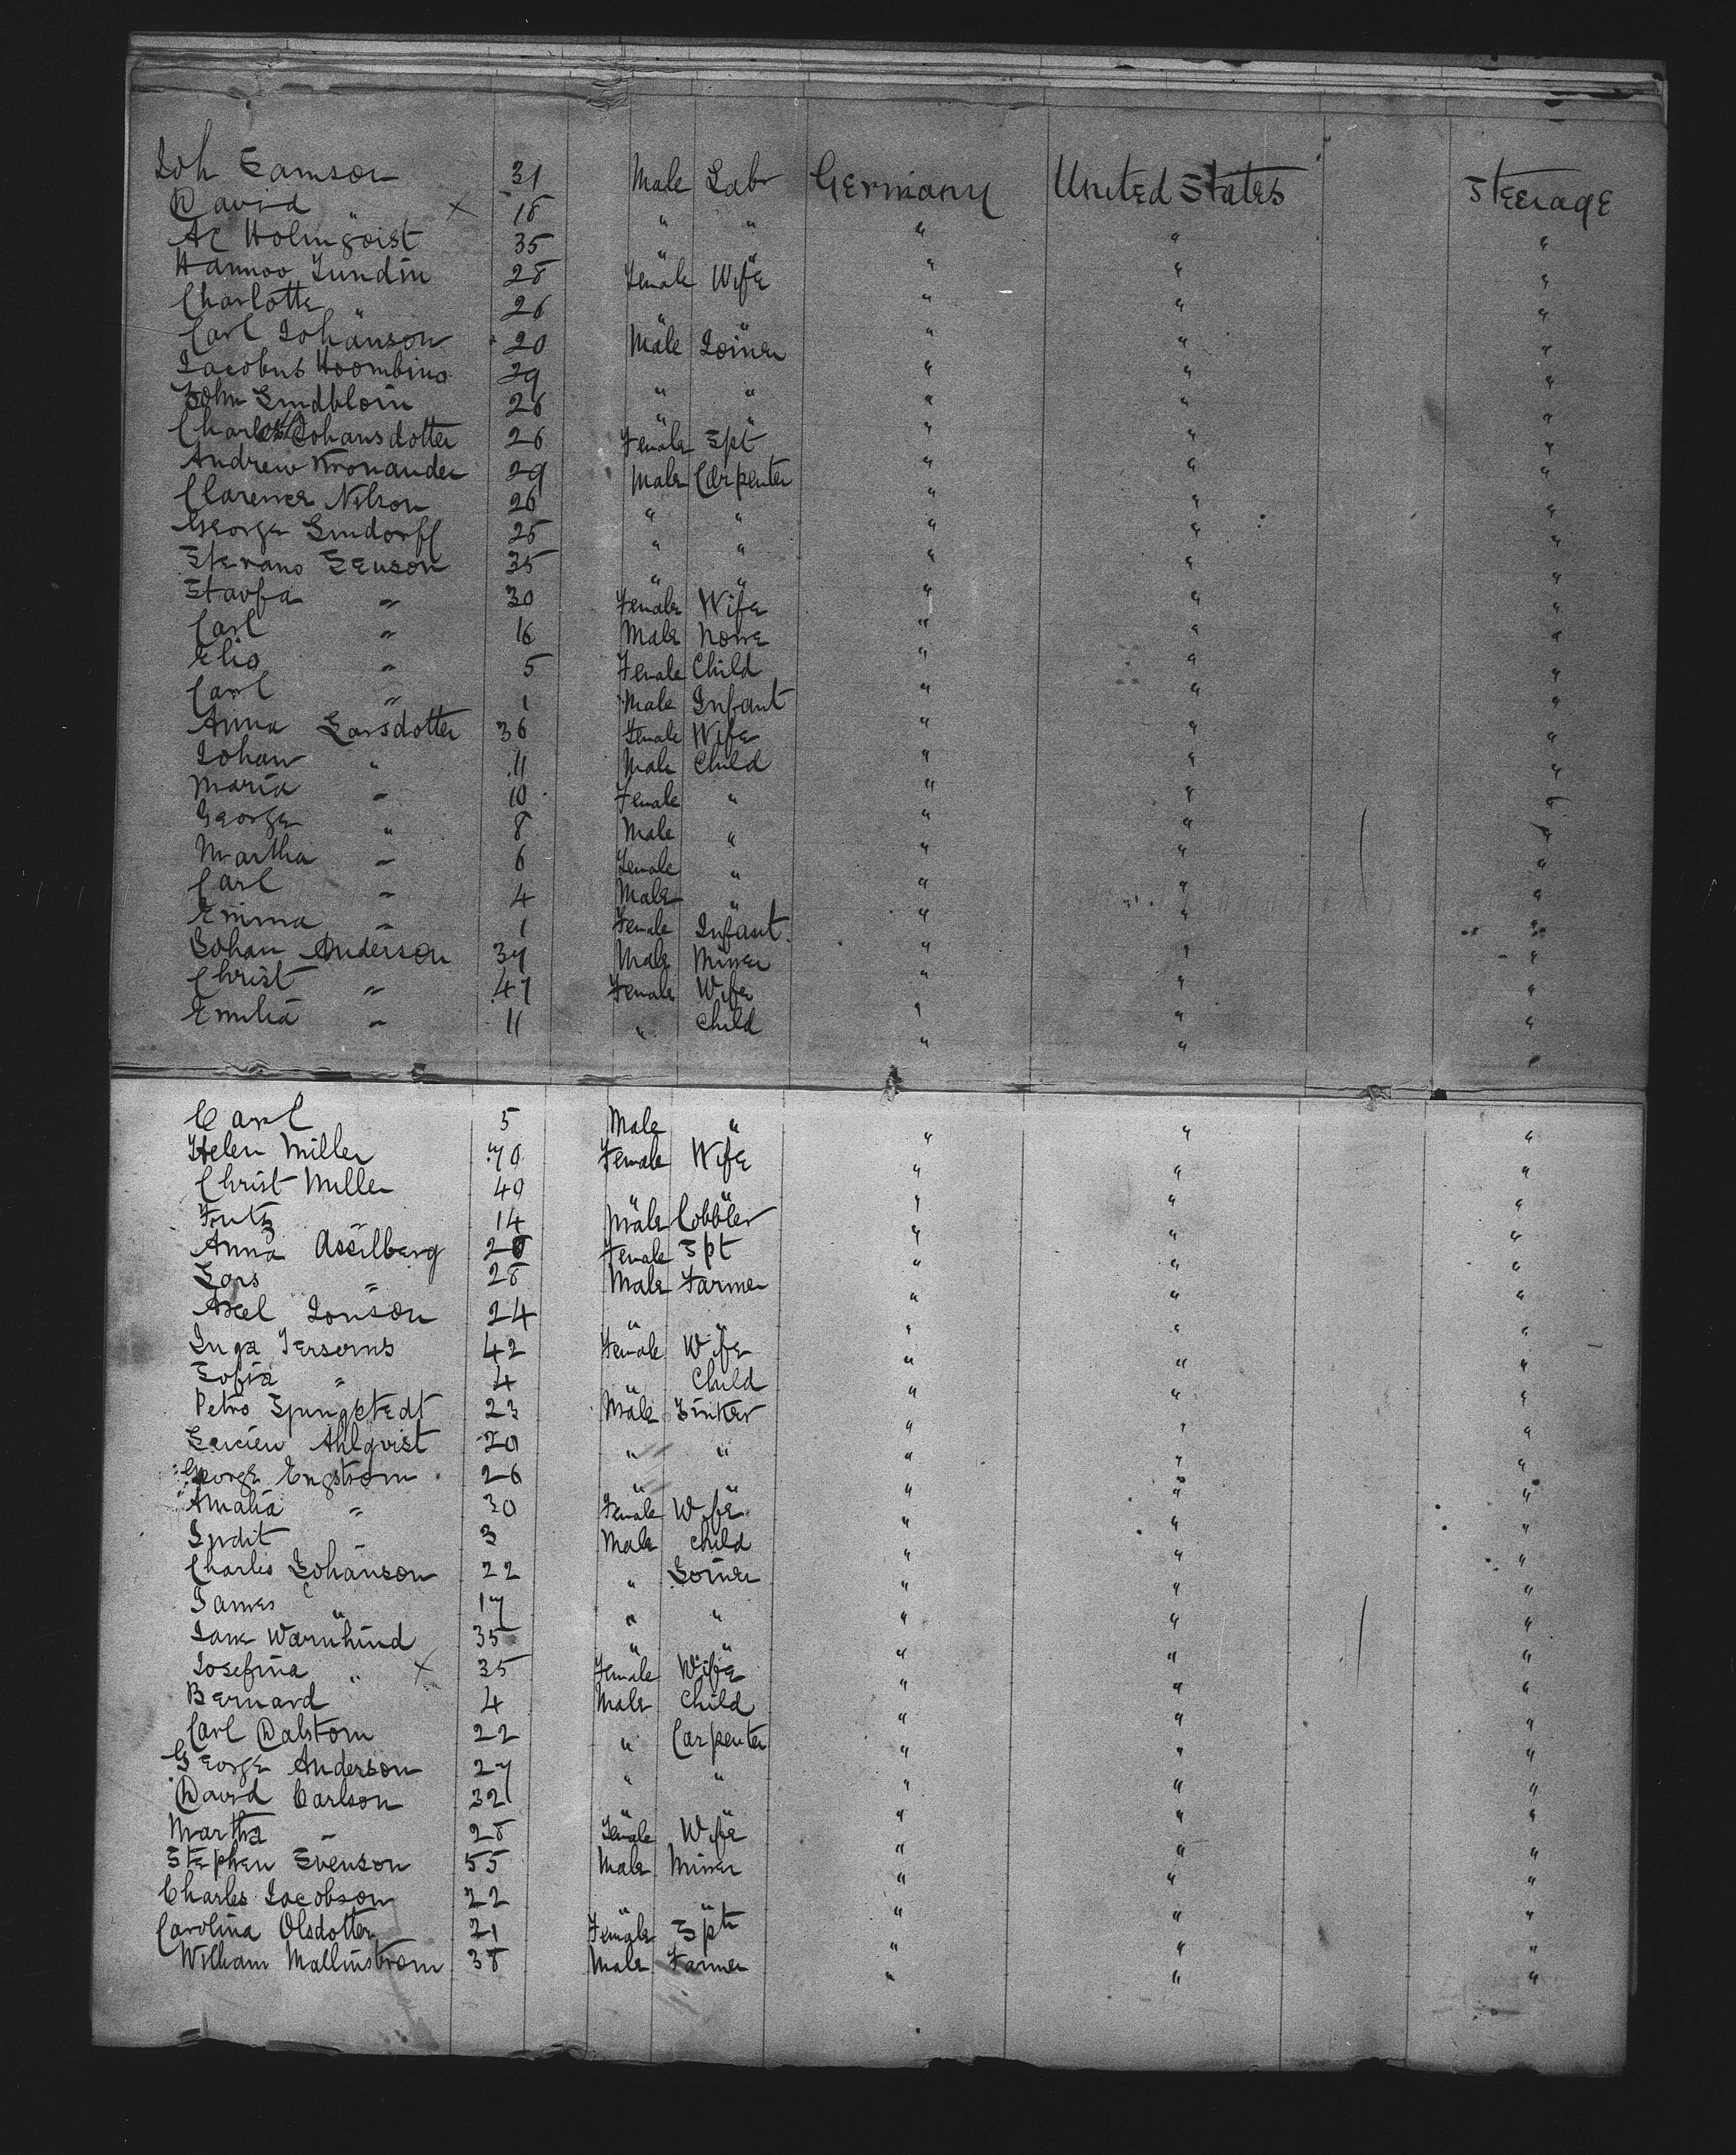 Joh Samson 31 Male Labr Germany United States Steerage
David " × 18 " " " " "
Ac Holmqoist 35 " " "
Hannoo Lundin 28 Female Wife " " "
Charlotte " 26 " " " " "
Carl Johanson 20 Male Joiner " " "
Jacobus Hoombino 29 " " " " "
John Lindblom 26 " " " " "
Charlotta Johansdotter 26 Female Spt " " "
Andrew Kronander 29 Male Carpenter " " "
Clarence Nilson 26 " " " " "
George Lindorff 25 " " " " "
Stevano Senson 35 " " " " "
Stavfa " 30 Female Wife " " "
Carl " 16 Male None " " "
Elia " 5 Female Child " " "
Carl " 1 Male Infant " " "
Anna Larsdotter 36 Female Wife " " "
Johan " 11 Male Child " " "
Maria " 10 Female " " " "
George " 8 Male " " " "
Martha " 6 Female " " " "
Carl " 4 Male " " " "
Emma " 1 Female Infant " " "
Johan Anderson 37 Male Miner " " "
Christ " 47 Female Wife " " "
Emilia " 11 " Child " " "
Carl 5 Male " " " "
Helen Miller 40 Female Wife " " "
Christ Miller 49 " " " " "
Fritz " 14 Male Cobbler " " "
Anna Assilberg 28 Female Spt " " "
Lars " 28 Male Farmer " " "
Axel Jonson 24 " " " " "
Inga Persorns 42 Female Wife " " "
Sofia " 4 " Child " " "
Petro Spungstedt 23 Male Tinker " " "
Lucien Ahlqvist 20 " " " " "
George Engstrom 26 " " " " "
Amalia " 30 Female Wife " " "
Indit " 3 Male Child " " "
Charles Johanson 22 " Joiner " " "
James " 17 " " " " "
Jane Warnhind 35 " " " " "
Josefina " × 35 Female Wife " " "
Bernard 4 Male Child " " "
Carl Dalstom 22 " Carpenter " " "
George Anderson 27 " " " " "
David Carlson 32 " " " " "
Martha " 28 Female Wife " " "
Stephen Svenson 55 Male Miner " " "
Charles Jacobson 22 " " " " "
Carolina Olsdotter 21 Female Spt " " "
William Mallinstrom 38 Male Farmer " " "